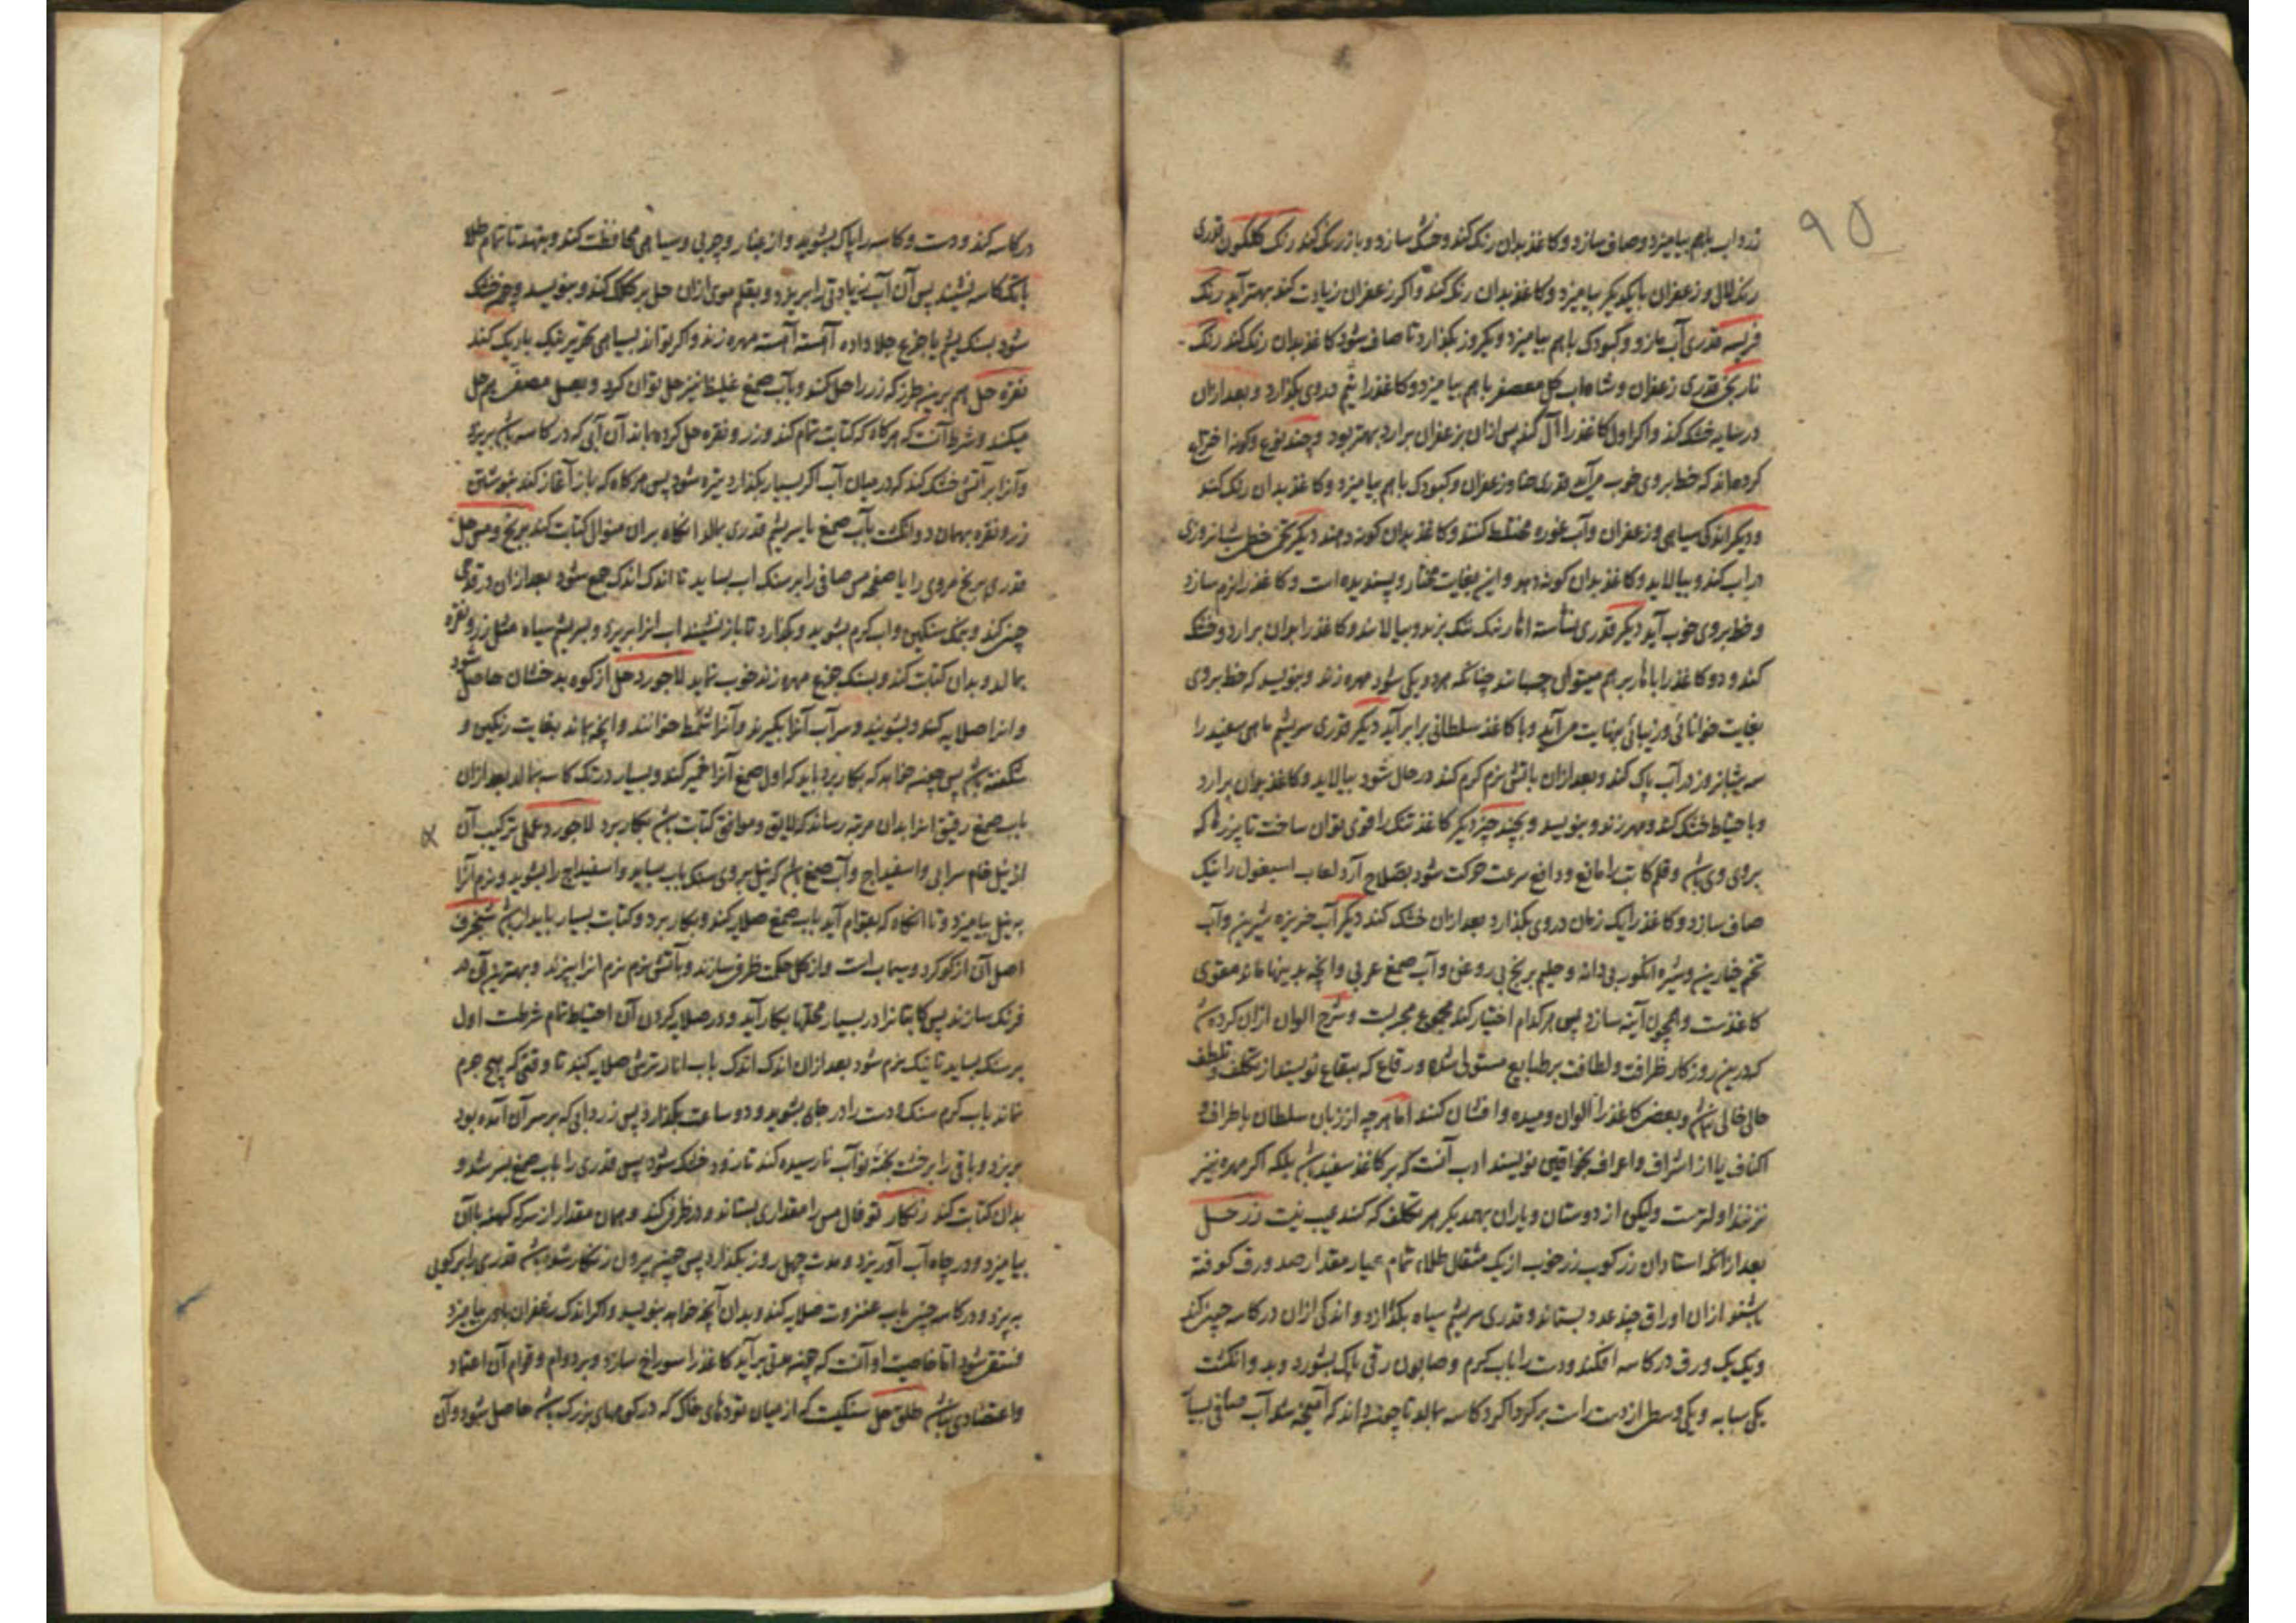 ۹۵
زرد آب باهم بیامیزد و صاف سازد و کاغذ بدان رنک کند و خشک سازد و باز رنک کند رنک کلکون قدری
رنک لال و زعفران با یکدیکر بیامیزد و کاغذ بدان رنک کند و اکر زعفران زیادت کند بهتر آید رنک
قدری آب مازو و کبودک باهم بیامیزد و یکروز بکذارد تا صاف شود کاغذ بدان رنک کند رنک
نارنجی قدری زعفران و شاه اب کل معصفر باهم بیامیزد و کاغذ را دروی بکذارد و بعد ازان
در سایه خشک کند و اکر اول کاغذ را آل کند پس ازان بزعفران برارد بهتر بود و چند نوع و کونه اختراع
کرده‌اند که خط بروی خوب می‌آید قدری حنا و زعفران و کبودک باهم بیامیزد و کاغذ بدان رنک کند
و دیکر اندکی سیاهی و زعفران و آب غوره مختلط کنند و کاغذ بدان کونه دهند دیکر تخم شبانروزی
در اب کند و بیالاید و کاغذ بدان کونه دهد و این بغایت مختار و پسندیده است و کاغذ را نرم سازد
و خط بروی خوب آید دیکر قدری نشاسته تنک بزند و بیالاند و کاغذ را بدان برارد و خشک
کند و دو کاغذ را برهم میتوان چسباند چنانکه هر دو یکی شود مهره زند و بنویسد که خط بروی
بغایت خوانائی و زیبائی بنهایت می‌آید و با کاغذ سلطانی برابر آید دیکر قدری سریشم ماهی سفید را
سه شبانروز در آب پاک کند و بعد ازان باتش نرم کرم کند در حال شود بیالاید و کاغذ بدان برارد
و باحتیاط خشک کند و مهره زند و بنویسد و بچند چیز دیکر کاغذ تنک را قوی توان ساخت تا پرزها که
بروی وی باشد و قلم کاتب را مانع و دافع سرعت حرکت شود بصلاح آرد لعاب اسبغول را نیک
صاف سازد و کاغذ را یک زمان دروی بکذارد بعد ازان خشک کند دیکر آب خربزه شیرین و آب
تخم خیارین و شیره انکور بی دانه و حلیم برنج بی روغن و آب صمغ عربی و آنچه بدینها ماند مقوی
کاغذست و همچون آینه سازد پس هر کدام اختیار کند مجموع مجربست و شرح الوان ازان کرده شد
که درین روزکار ظرافت و لطافت بر طبایع مستولی شده و رقاع که ببقاع نویسند از تکلف و تلطف
خالی نباشد و بعضی کاغذ را الوان و افشان کنند اما هر چه از زبان سلطان باطراف و
اکناف یا از اشراف و اعراف بخواقین نویسند ادب آنست که بر کاغذ سفید باشد بلکه اکر مهره نیز
نزنند اولیترست ولیکن از دوستان و یاران بهمدیکر هر تکلف که کنند عیب نیست زر حل
بعد از آنکه استادان زرکوب زر خوب از یک مثقال طلاء تمام عیار مقدار صد ورق کوفته
باشند ازان اوراق چند عدد بستاند و قدری سریشم سیاه بکدازد و اندکی ازان در کاسه چینی کند
و یک یک ورق در کاسه افکند و دست را باب کرم و صابون رقی پاک بشورد و بدو انکشت
یکی سبابه و یکی وسطی از دست راست برکرداکرد کاسه بمالد تا چون داند که آمیخته شد آب صافی
در کاسه کند و دست و کاسه را پاک بشوید و از غبار و چربی و سیاهی محافظت کند و بنهد تا تمام طلا
بتک کاسه بنشیند پس آن آب زیادتی را بریزد و بقلم موی ازان حل بر کلک کند و بنویسد و چون خشک
شود بسنک یشم یا جزع جلا داده آهسته آهسته مهره زند و اکر تواند بسیاهی تحریر نیک باریک کند
نقره حل هم برین طرز که زر را حل کند و باب صمغ غلیظ نیز حل توان کرد و بعسل مصفی هم حل
میکنند و شرط آنست که هرکاه که کتابت تمام کند و زر و نقره حل کرده بماند آن آبی که در کاسه باشد بریزد
و آنرا بر آتش خشک کند که در میان آب اکر بسیار بکذارد تیره شود پس هرکاه که باز آغاز کند بنوشتن
زر و نقره بهمان دو انکشت باب صمغ یا سریشم قدری بمالد انکاه بران منوال کتابت کند برنج و مس حل
قدری برنج مروی را یا صفحه مس صافی را بر سنک اب بساید تا اندک اندک جمع شود بعد ازان در قدحی
چینی کند و بنمک سنکین و اب کرم بشوید و بکذارد تا باز نشیند اب انرا بریزد و بسریشم سیاه مثل زر و نقره
بمالد و بدان کتابت کند و بسنک جزع مهره زند خوب نماید لاجورد حل از کوه بدخشان حاصل شود
و انرا صلایه کند و بشویند و سر آب آنرا بکیرند و آنرا خوانند و آنچه بماند بغایت رنکین و
شکفته باشد پس چون خواهد که بکار برد باید که اول صمغ آنرا خمیر کند و بسیار در تک کاسه بمالد بعد ازان
باب صمغ رقیق انرا بدان مرتبه رساند که لایق و موافق کتابت باشد بکار برد لاجورد عملی ترکیب آن
از نیل خام سرابی و اسفیداج و آب صمغ باشد که نیل بروی سنک باب بساید و اسفیداج را بشوید و نرم آنرا
به نیل بیامیزد و تا انکاه که بقوام آید باب صمغ صلایه کند و بکار برد و کتابت بسیار پایدار باشد شنجرف
اصل آن از کوکرد و سیماب است و از کل حکمت ظرف سازند و باتش نرم نرم انرا بپزند و بهترین آن در
فرنک سازند پس کاتبانرا در بسیار محلها بکار آید و در صلایه کردن آن احتیاط تمام شرطست اول
بر سنک بساید تا نیک نرم شود بعد ازان اندک اندک باب انار ترش صلایه کند تا وقتی که هیچ جرم
نماند باب کرم سنک و دست را در جای بشوید و دو ساعت بکذارد پس زردابی که بر سر آن آمده بود
بریزد و باقی را بر خشت پخته نو آب نارسیده کند تا زود خشک شود پس قدری را باب صمغ بسرشد و
بدان کتابت کند زنکار توفال مس را مقداری بستاند و در ظرفی کند و همان مقدار از سرکه کهنه باآن
بیامیزد و در چاه آب آویزد و مدت چهل روز بکذارد پس چون بیرون زنکار شده باشد قدری را بر کوبی
بریزد و در کاسه چینی باب عنزروت صلایه کند و بدان آنچه خواهد بنویسد و اکر اندک زعفران باوی بیامیزد
فستقی شود اما خاصیت او آنست که چون مدتی برآید کاغذ را سوراخ سازد و بر دوام و قوام آن اعتماد
و اعتضادی نباشد طلق حل سنکیست که از میان توده‌های خاک که در کوههای بزرک باشد حاصل شود و آن